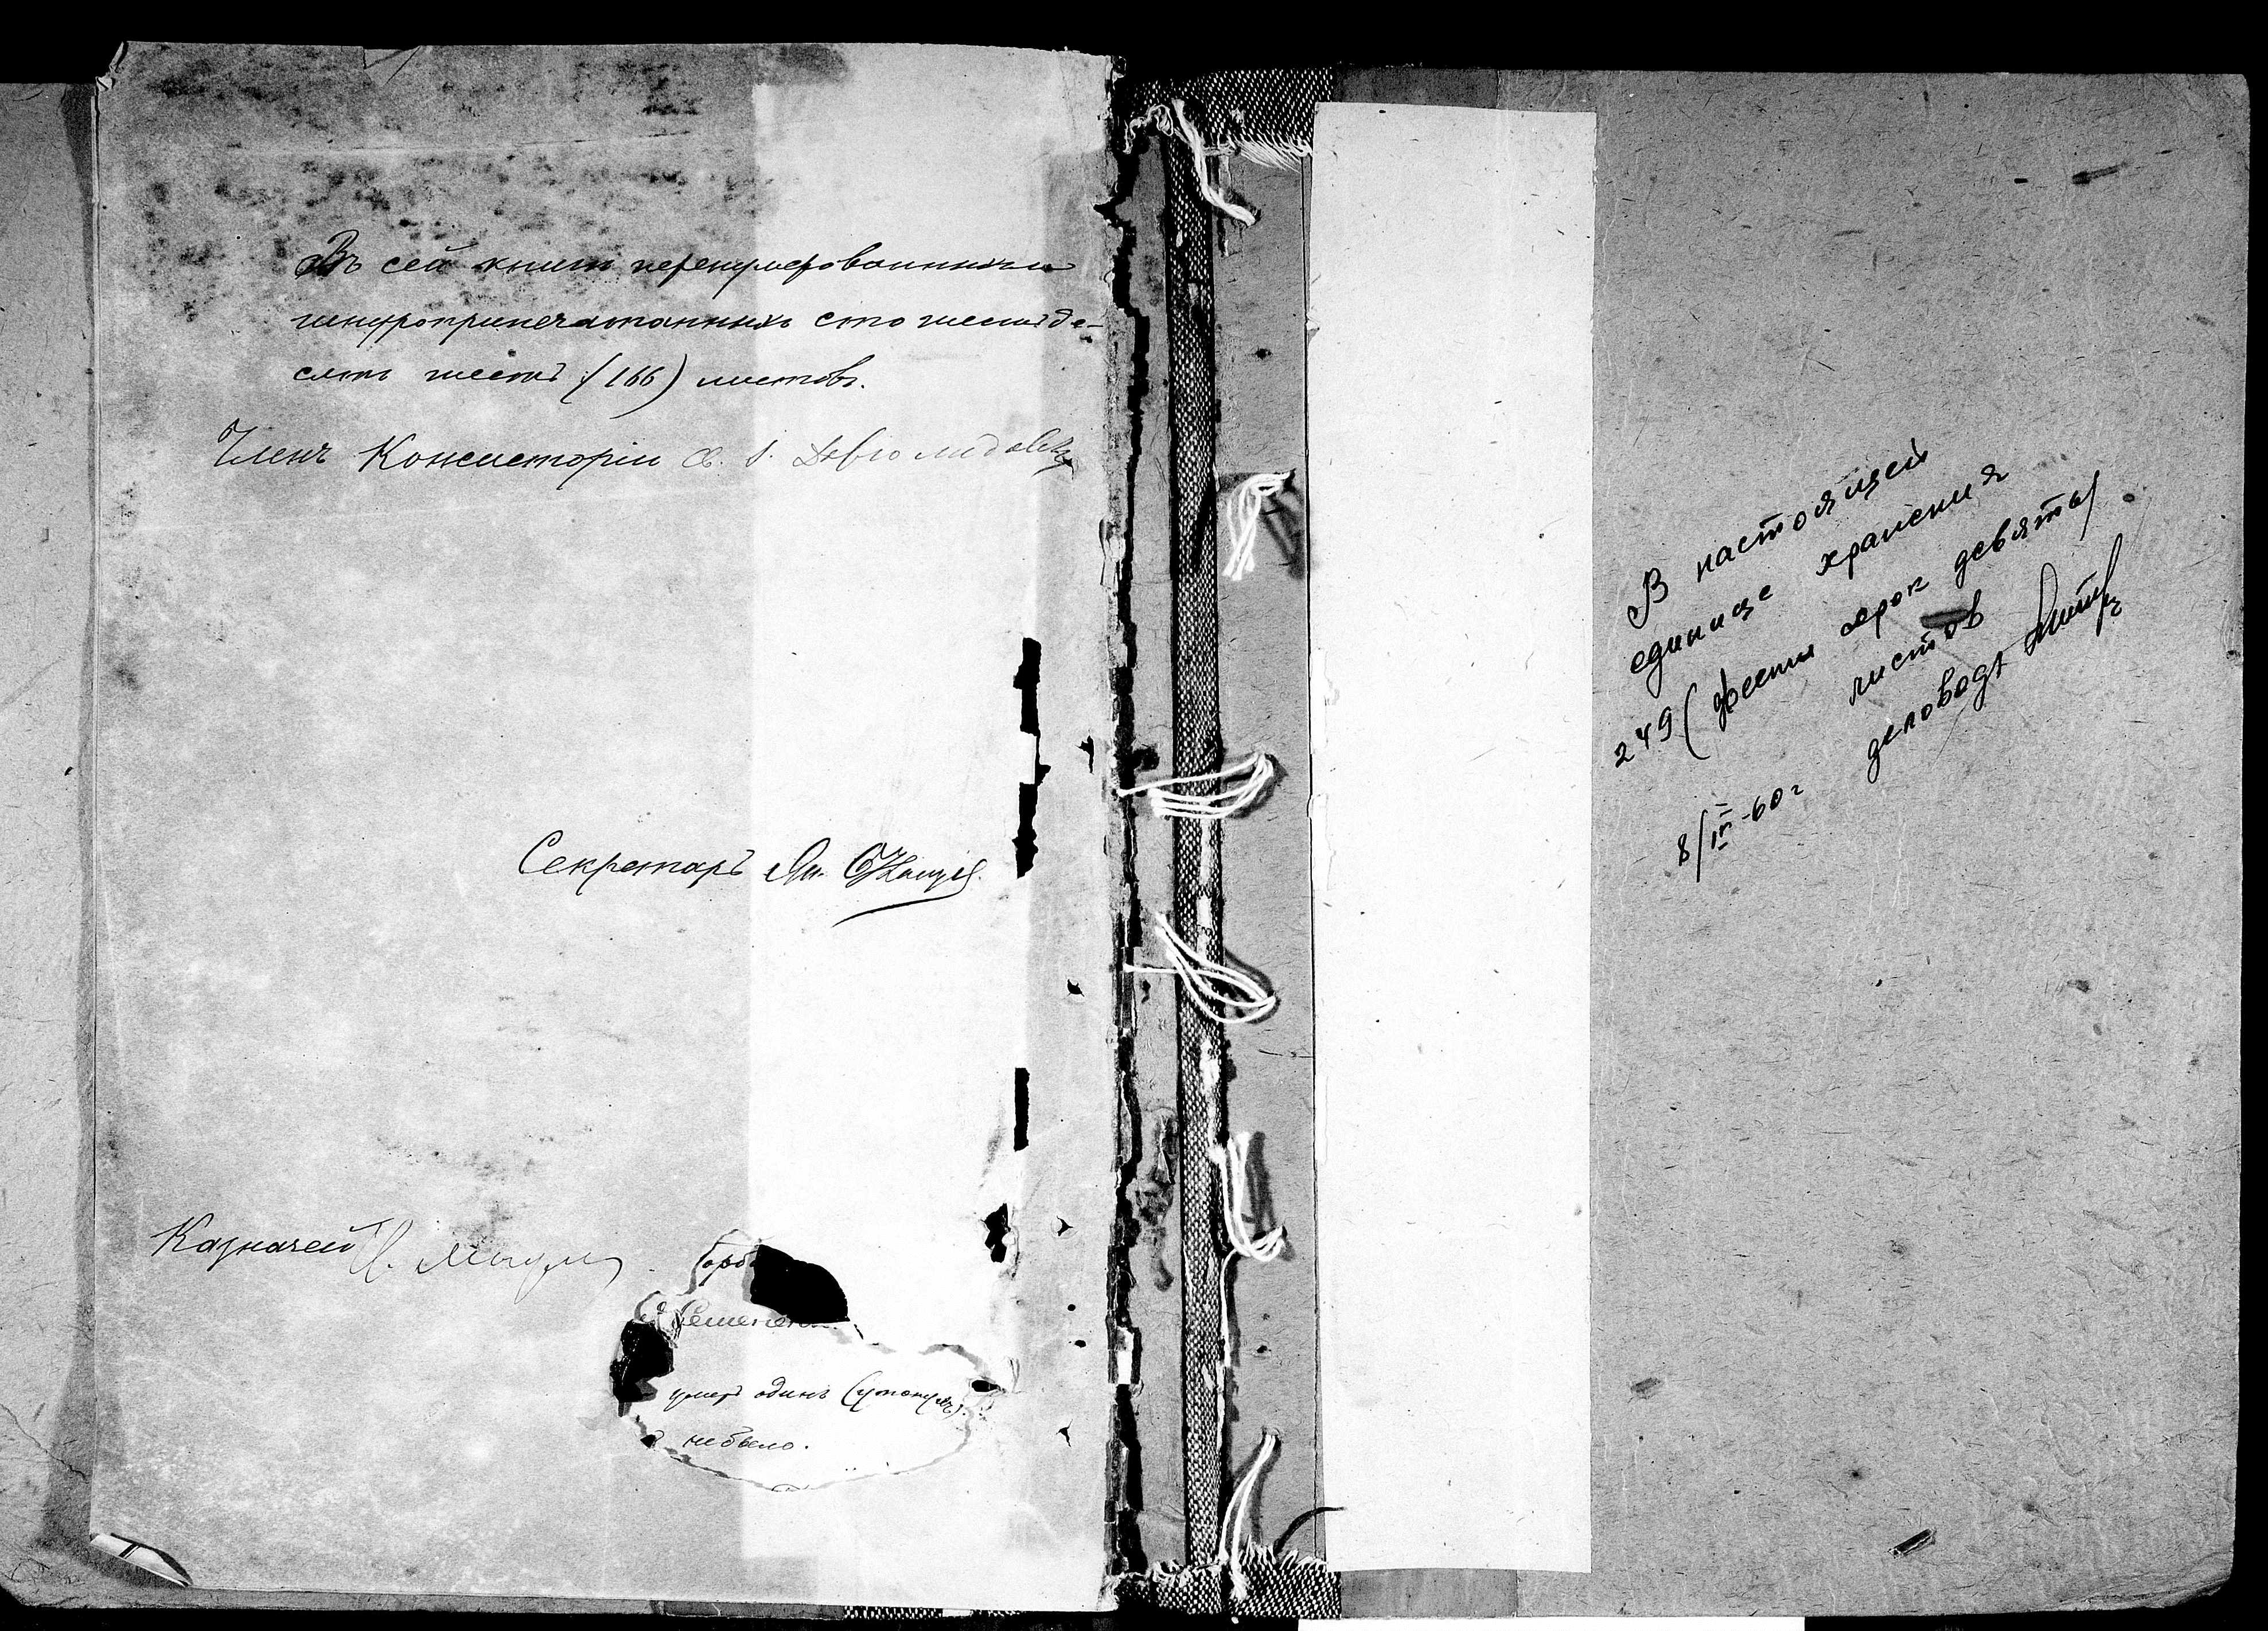 Въ сей книге перенумерованныхъ и
шнуроприпечатанныхъ сто шестьде-
сятъ шесть (166) листовъ.
Членъ Консисторіи
Секретарь
Казначей
умеръ одинъ (утонулъ).
не было.
В настоящей
единице хранения
249 (двести сорок девять)
листов
деловод
8/IV-60 г